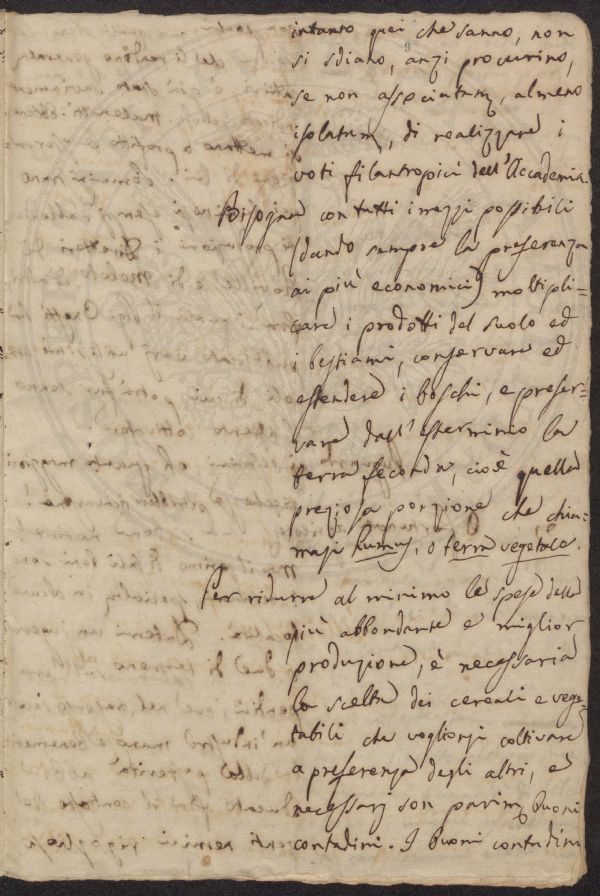 intanto quei che sanno, non
si sdiano, anzi procurino,
se non associatam, almeno
isolatam, di realizzare i
voti filantropici dell'Accademia.
Bisogna con tutti i mezzi possibili
(dando sempre la preferenza
ai più economici) moltipli=
care i prodotti del suolo ed
i bestiami, conservare ed
estendere i boschi, e preser=
vare dall'esterminio la
terra feconda, cioè quella
preziosa porzione che chia=
masi humus, o terra vegetale.
Per ridurre al minimo le spese della
più abbondante e miglior
produzione, è necessaria
la scelta dei cereali e vege=
tabili che voglionsi coltivare
a preferenza degli altri, e
necessarj son parim. buoni
contadini. I buoni contadini